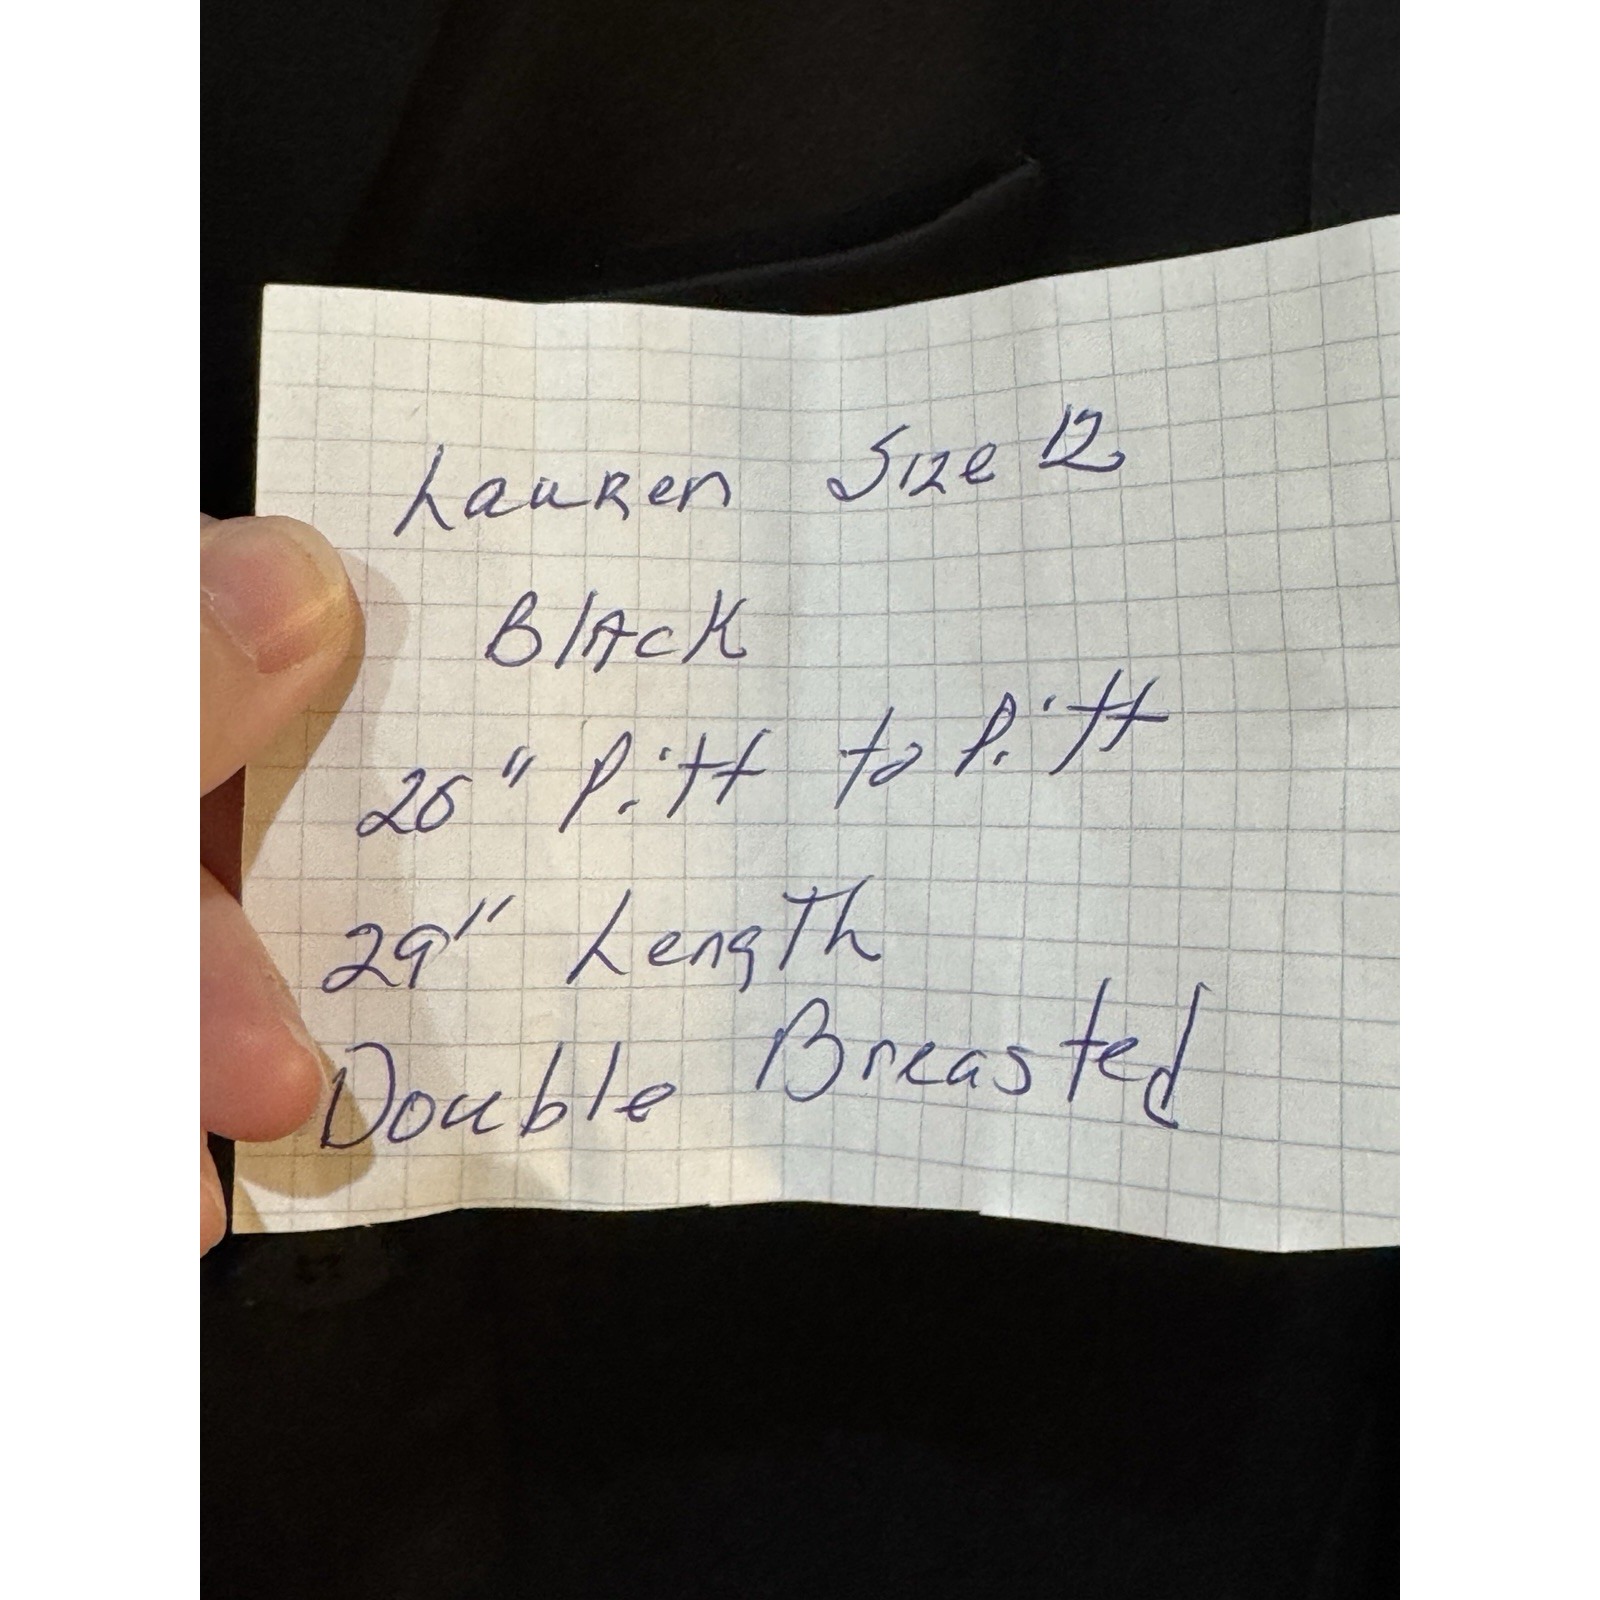 Lauren Size 12
Black
26" Pitt to Pitt
29" Length
Double Breasted